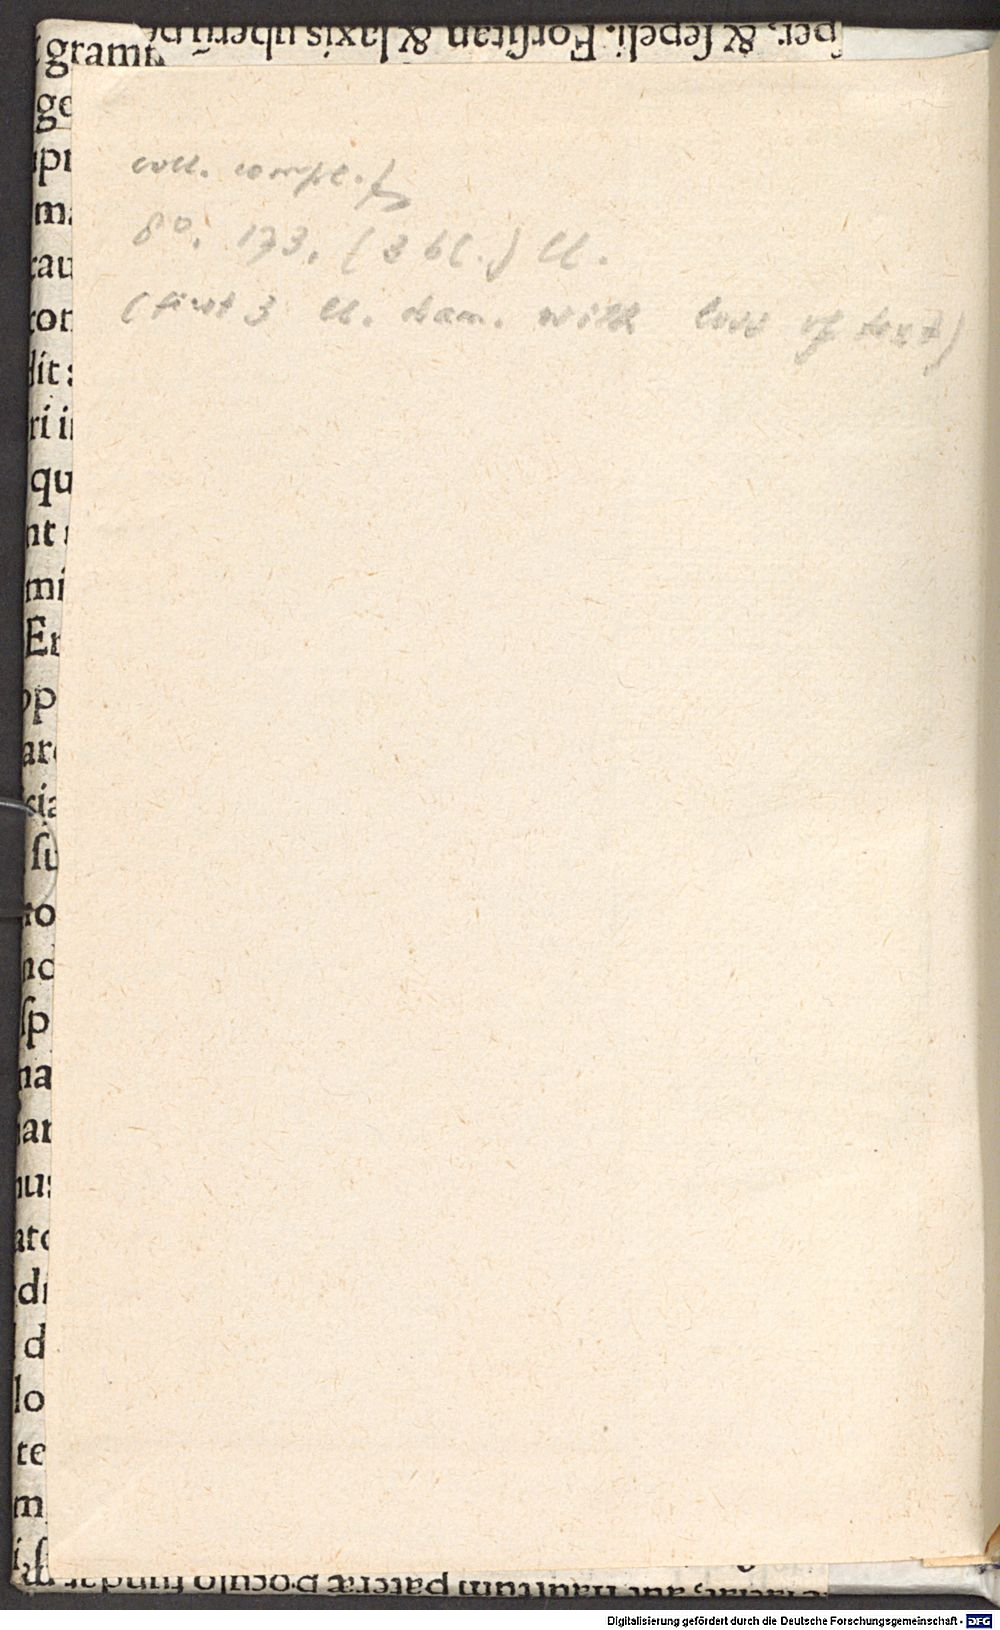 ſper, & ſepeli. Forſitan & laxis uberũ
gramı
ge
pr
ma
cau
con
dit:
ri i
qu
nt
mi
Er
pp
are
cia
ſu
ro
nd
ſp
na
ar
nus
ato
di
d
lo
te
m
coll. compl. f
8°. 173. (3 bl.) ll.
(first 3 ll. dam. with loss of text)
hauſtum pateræ poculo fundat
Digitalisierung gefördert durch die Deutsche Forschungsgemeinschaft - DFG